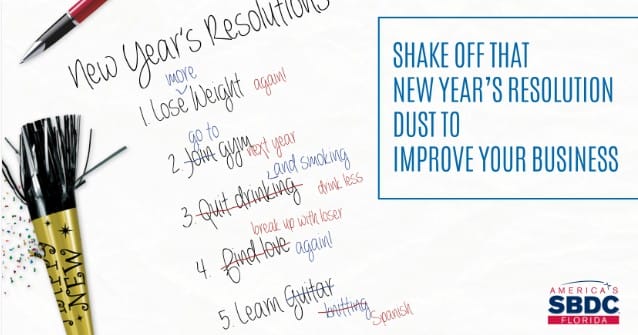 New Year's Resolutions
more
1. Lose Weight again!
go to
2. Join gym next year
and smoking
3. Quit drinking drink less
break up with loser
4. Find love again!
5. Learn Guitar
knitting Spanish
SHAKE OFF THAT
NEW YEAR'S RESOLUTION
DUST TO
IMPROVE YOUR BUSINESS
NEW
AMERICA'S
SBDC
FLORIDA